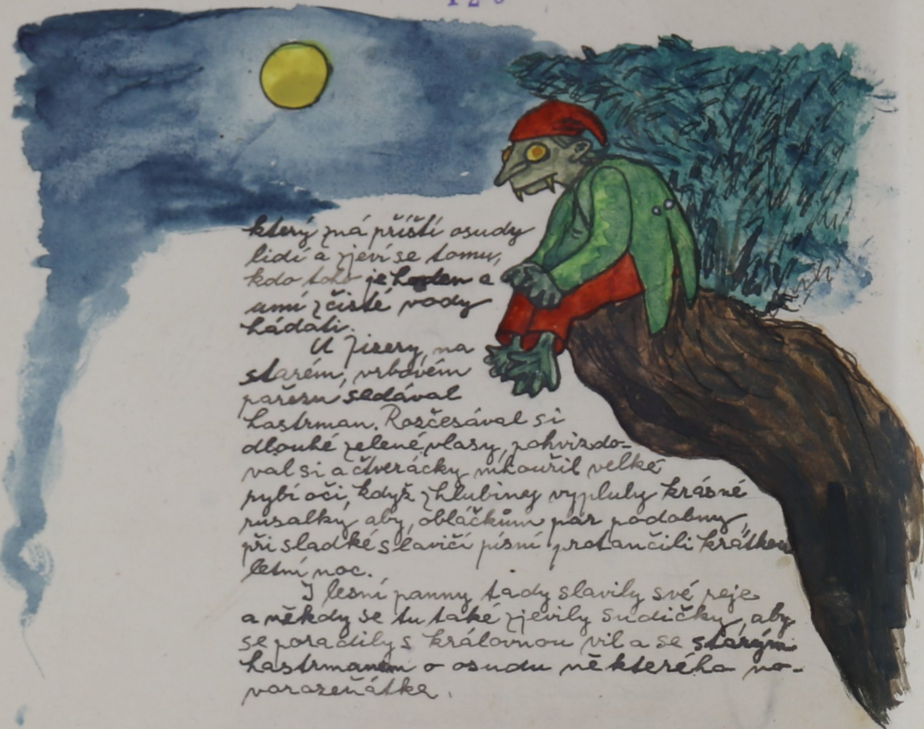 který zná příští osudy
lidí a zjeví se tomu,
kdo toho je hoden a
umí z čisté vody
hádati.
U Jizery, na
starém, vrbovém
pařezu sedával
hastrman. Rozčesával si
dlouhé zelené vlasy, pohvizdo-
val si a čtverácky mhouřil velké
rybí oči, když z hlubiny vypluly krásné
rusalky, aby, obláčkům par podobny,
při sladké slavičí písni protančily krátkou
letní noc.
I lesní panny tady slavily své reje
a někdy se tu také zjevily sudičky, aby
se poradily s královnou vil a se starým
hastrmanem o osudu některého no-
vorozeňátka.